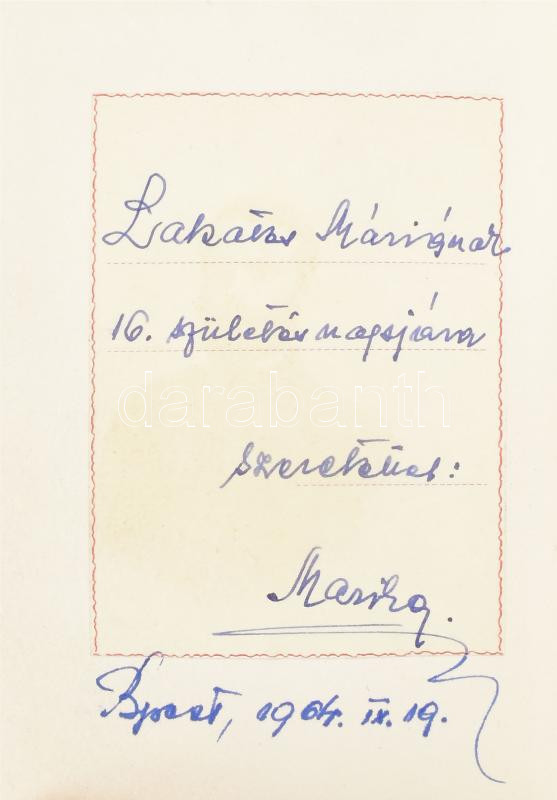 Lakatos Máriának
16. születésnapjára
darabanth
szeretettel:
Marika.
Bpest, 1964. IX. 19.